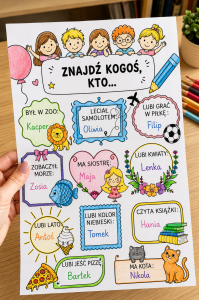 ZNAJDŹ KOGOŚ,
KTO...
BYŁ W ZOO:
Kacper
LECIAŁ
SAMOLOTEM:
Oliwia
LUBI GRAĆ
W PIŁKĘ:
Filip
ZOBACZYŁ
MORZE:
Zosia
MA SIOSTRĘ:
Maja
LUBI KWIATY
Lenka
LUBI LATO
Antoś
LUBI KOLOR
NIEBIESKI:
Tomek
CZYTA KSIĄŻKI:
Hania
LUBI JEŚĆ PIZZĘ
Bartek
MA KOTA:
Nikola